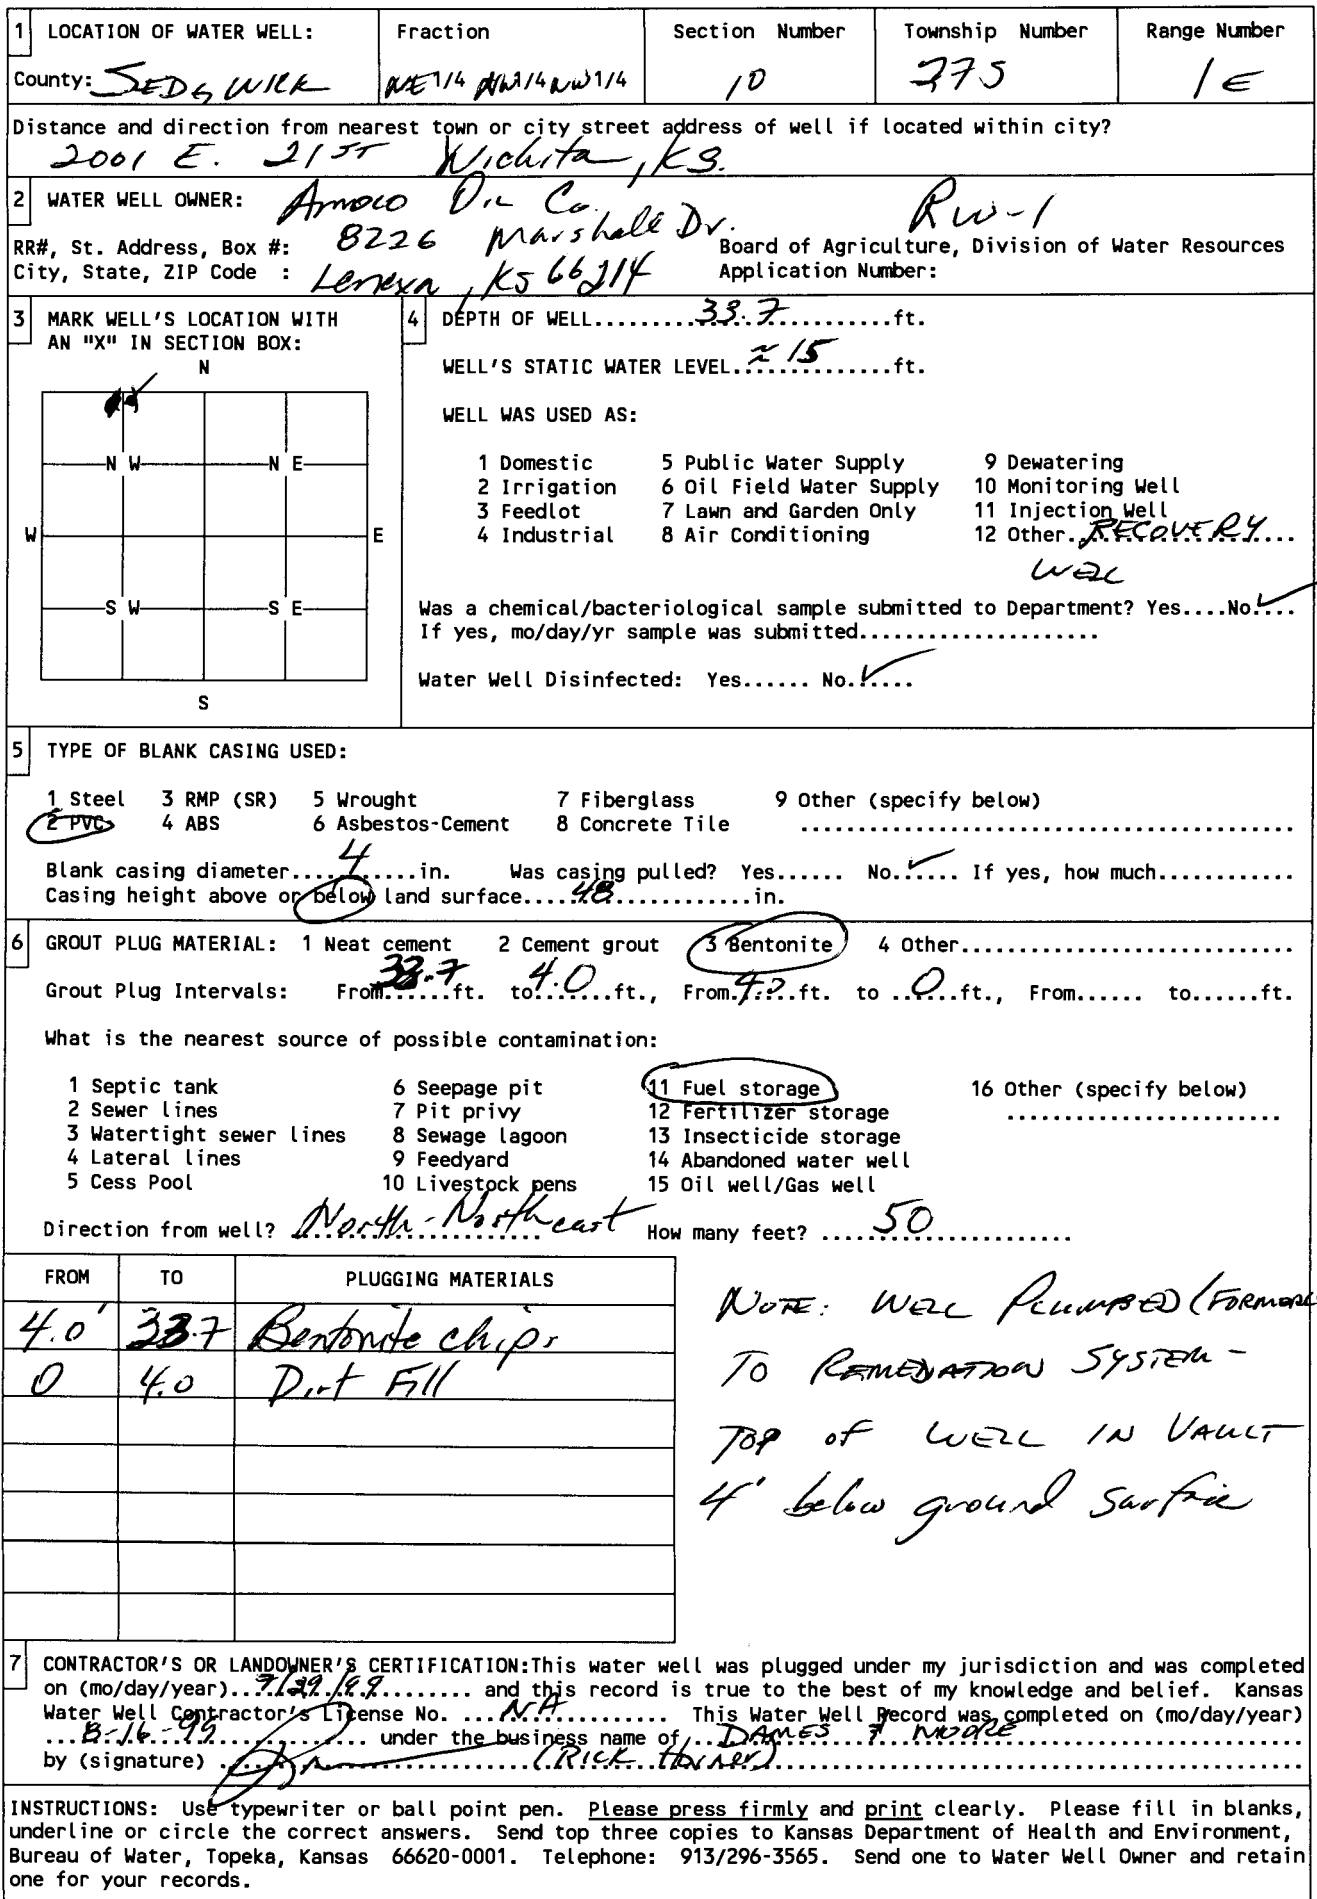 1 LOCATION OF WATER WELL: Fraction Section Number Township Number Range Number
County: SEDGWICK NE1/4 NW1/4 NW1/4 10 27S 1E
Distance and direction from nearest town or city street address of well if located within city?
2001 E. 21ST Wichita, KS.
2 WATER WELL OWNER: Amoco Oil Co. RW-1
RR#, St. Address, Box #: 8226 Marshall Dr. Board of Agriculture, Division of Water Resources
City, State, ZIP Code : Lenexa, KS 66214 Application Number:
3 MARK WELL'S LOCATION WITH AN "X" IN SECTION BOX:
N
N W N E
W E
S W S E
S
4 DEPTH OF WELL.........33.7...............ft.
WELL'S STATIC WATER LEVEL..≈ 15............ft.
WELL WAS USED AS:
1 Domestic 5 Public Water Supply 9 Dewatering
2 Irrigation 6 Oil Field Water Supply 10 Monitoring Well
3 Feedlot 7 Lawn and Garden Only 11 Injection Well
4 Industrial 8 Air Conditioning 12 Other..RECOVERY...
WELL
Was a chemical/bacteriological sample submitted to Department? Yes....No.✓...
If yes, mo/day/yr sample was submitted.....................
Water Well Disinfected: Yes...... No.✓....
5 TYPE OF BLANK CASING USED:
1 Steel 3 RMP (SR) 5 Wrought 7 Fiberglass 9 Other (specify below)
2 PVC 4 ABS 6 Asbestos-Cement 8 Concrete Tile ...........................................
Blank casing diameter.....4......in. Was casing pulled? Yes...... No.✓.... If yes, how much............
Casing height above or below land surface.....48.............in.
6 GROUT PLUG MATERIAL: 1 Neat cement 2 Cement grout 3 Bentonite 4 Other.............................
Grout Plug Intervals: From 33.7 ft. to 4.0 ft., From 4.0 ft. to 0 ft., From...... to......ft.
What is the nearest source of possible contamination:
1 Septic tank 6 Seepage pit 11 Fuel storage 16 Other (specify below)
2 Sewer lines 7 Pit privy 12 Fertilizer storage ........................
3 Watertight sewer lines 8 Sewage lagoon 13 Insecticide storage
4 Lateral lines 9 Feedyard 14 Abandoned water well
5 Cess Pool 10 Livestock pens 15 Oil well/Gas well
Direction from well? North-Northeast How many feet? .....50...............
FROM TO PLUGGING MATERIALS
4.0' 33.7 Bentonite chips
0 4.0 Dirt Fill
NOTE: WELL PLUMBED (FORMERL
TO REMEDIATION SYSTEM -
TOP OF WELL IN VAULT
4' below ground surface
7 CONTRACTOR'S OR LANDOWNER'S CERTIFICATION:This water well was plugged under my jurisdiction and was completed
on (mo/day/year)..7/29/99........ and this record is true to the best of my knowledge and belief. Kansas
Water Well Contractor's License No. ....NA............. This Water Well Record was completed on (mo/day/year)
...8-16-99.................. under the business name of ..DAMES & MOORE..........................
by (signature) (RICK Horner)
INSTRUCTIONS: Use typewriter or ball point pen. Please press firmly and print clearly. Please fill in blanks,
underline or circle the correct answers. Send top three copies to Kansas Department of Health and Environment,
Bureau of Water, Topeka, Kansas 66620-0001. Telephone: 913/296-3565. Send one to Water Well Owner and retain
one for your records.